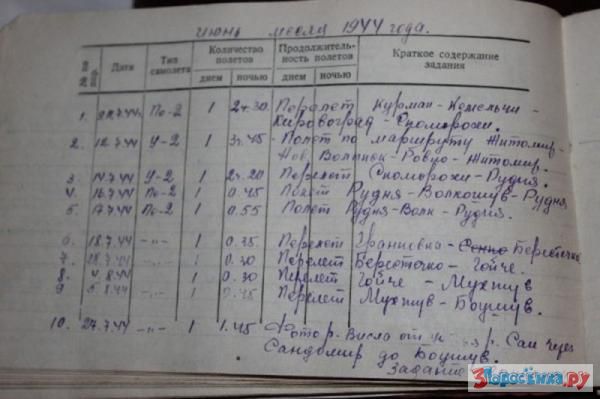 июнь месяц 1944 года.
№ по пор. Дата Тип самолета Количество полетов днем ночью Продолжитель-ность полетов днем ночью Краткое содержание задания
1. 7.44 По-2 1 2ч.30 Перелет Курман-Кемельчи -
Кировоград - Скоморохи.
2. 12.7.44 У-2 1 3ч.45 - Полет по маршруту Житомир-
Нов. Волынск-Ровно-Житомир.
3. 14.7.44 У-2 1 2ч.20 Перелет Скоморохи-Рудня.
4. 16.7.44 По-2 1 0.45 Полет Рудня-Волкошув-Рудня
5. 17.7.44 По-2 1 0.55 Полет Рудня-Волк-Рудня.
6. 18.7.44 -"- 1 0.35 Перелет Грановка- Берестечко
7. 28.7.44 -"- 1 0.30 Перелет Берестечко - Гойче.
8. 4.8.44 -"- 1 0.30 Перелет Гойче - Мухтув
9 5.8.44 -"- 1 0.45 Перелет Мухтув - Боушув.
10. 27.7.44 -"- 1 1.45 Фото р. Висла от р. Сан через
Сандомир до Боушув.
Задание
3Поросенка.ру